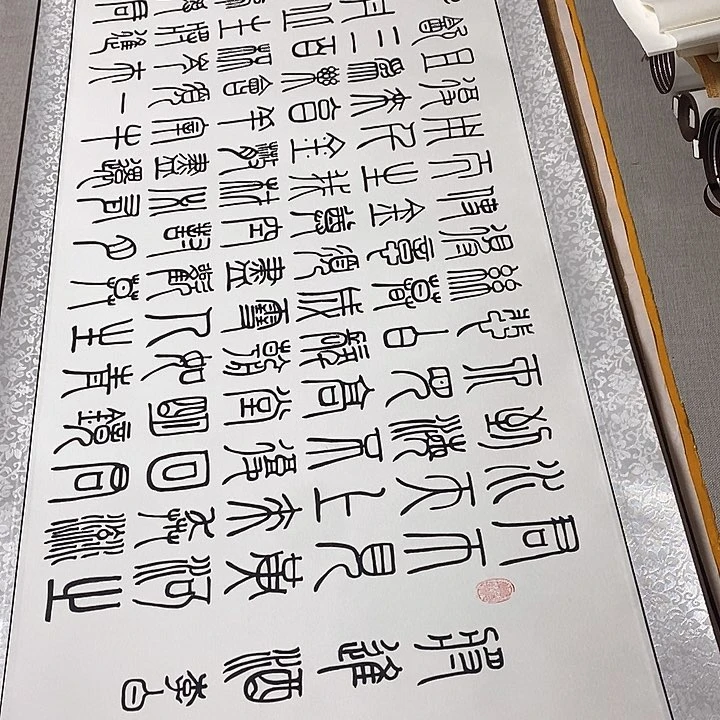 將進酒 李白
君不見黃河之
水天上來奔流
到海不復回君
不見高堂明鏡
悲白髮朝如青
絲暮成雪人生
得意須盡歡莫
使金樽空對月
天生我材必有
用千金散盡還
復來烹羊宰牛
且為樂會須一
飲三百杯岑夫
丹丘生將進
君